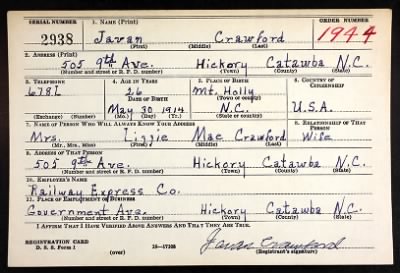 SERIAL NUMBER 1. NAME (Print) ORDER NUMBER
2938 Javan Crawford 1944
(First) (Middle) (Last)
2. ADDRESS (Print)
505 9th Ave. Hickory Catawba N.C.
(Number and street or R. F. D. number) (Town) (County) (State)
3. TELEPHONE 4. AGE IN YEARS 5. PLACE OF BIRTH 6. COUNTRY OF CITIZENSHIP
678L 26 Mt. Holly
DATE OF BIRTH (Town or county)
May 30 1914 N.C. U.S.A.
(Exchange) (Number) (Mo.) (Day) (Yr.) (State or country)
7. NAME OF PERSON WHO WILL ALWAYS KNOW YOUR ADDRESS 8. RELATIONSHIP OF THAT PERSON
Mrs. Lizzie Mae Crawford Wife
(Mr., Mrs., Miss) (First) (Middle) (Last)
9. ADDRESS OF THAT PERSON
505 9th Ave. Hickory Catawba N.C.
(Number and street or R. F. D. number) (Town) (County) (State)
10. EMPLOYER'S NAME
Railway Express Co.
11. PLACE OF EMPLOYMENT OR BUSINESS
Government Ave. Hickory Catawba N.C.
(Number and street or R. F. D. number) (Town) (County) (State)
I AFFIRM THAT I HAVE VERIFIED ABOVE ANSWERS AND THAT THEY ARE TRUE.
REGISTRATION CARD
D. S. S. Form 1 16-17105 Javan Crawford
(Registrant's signature)